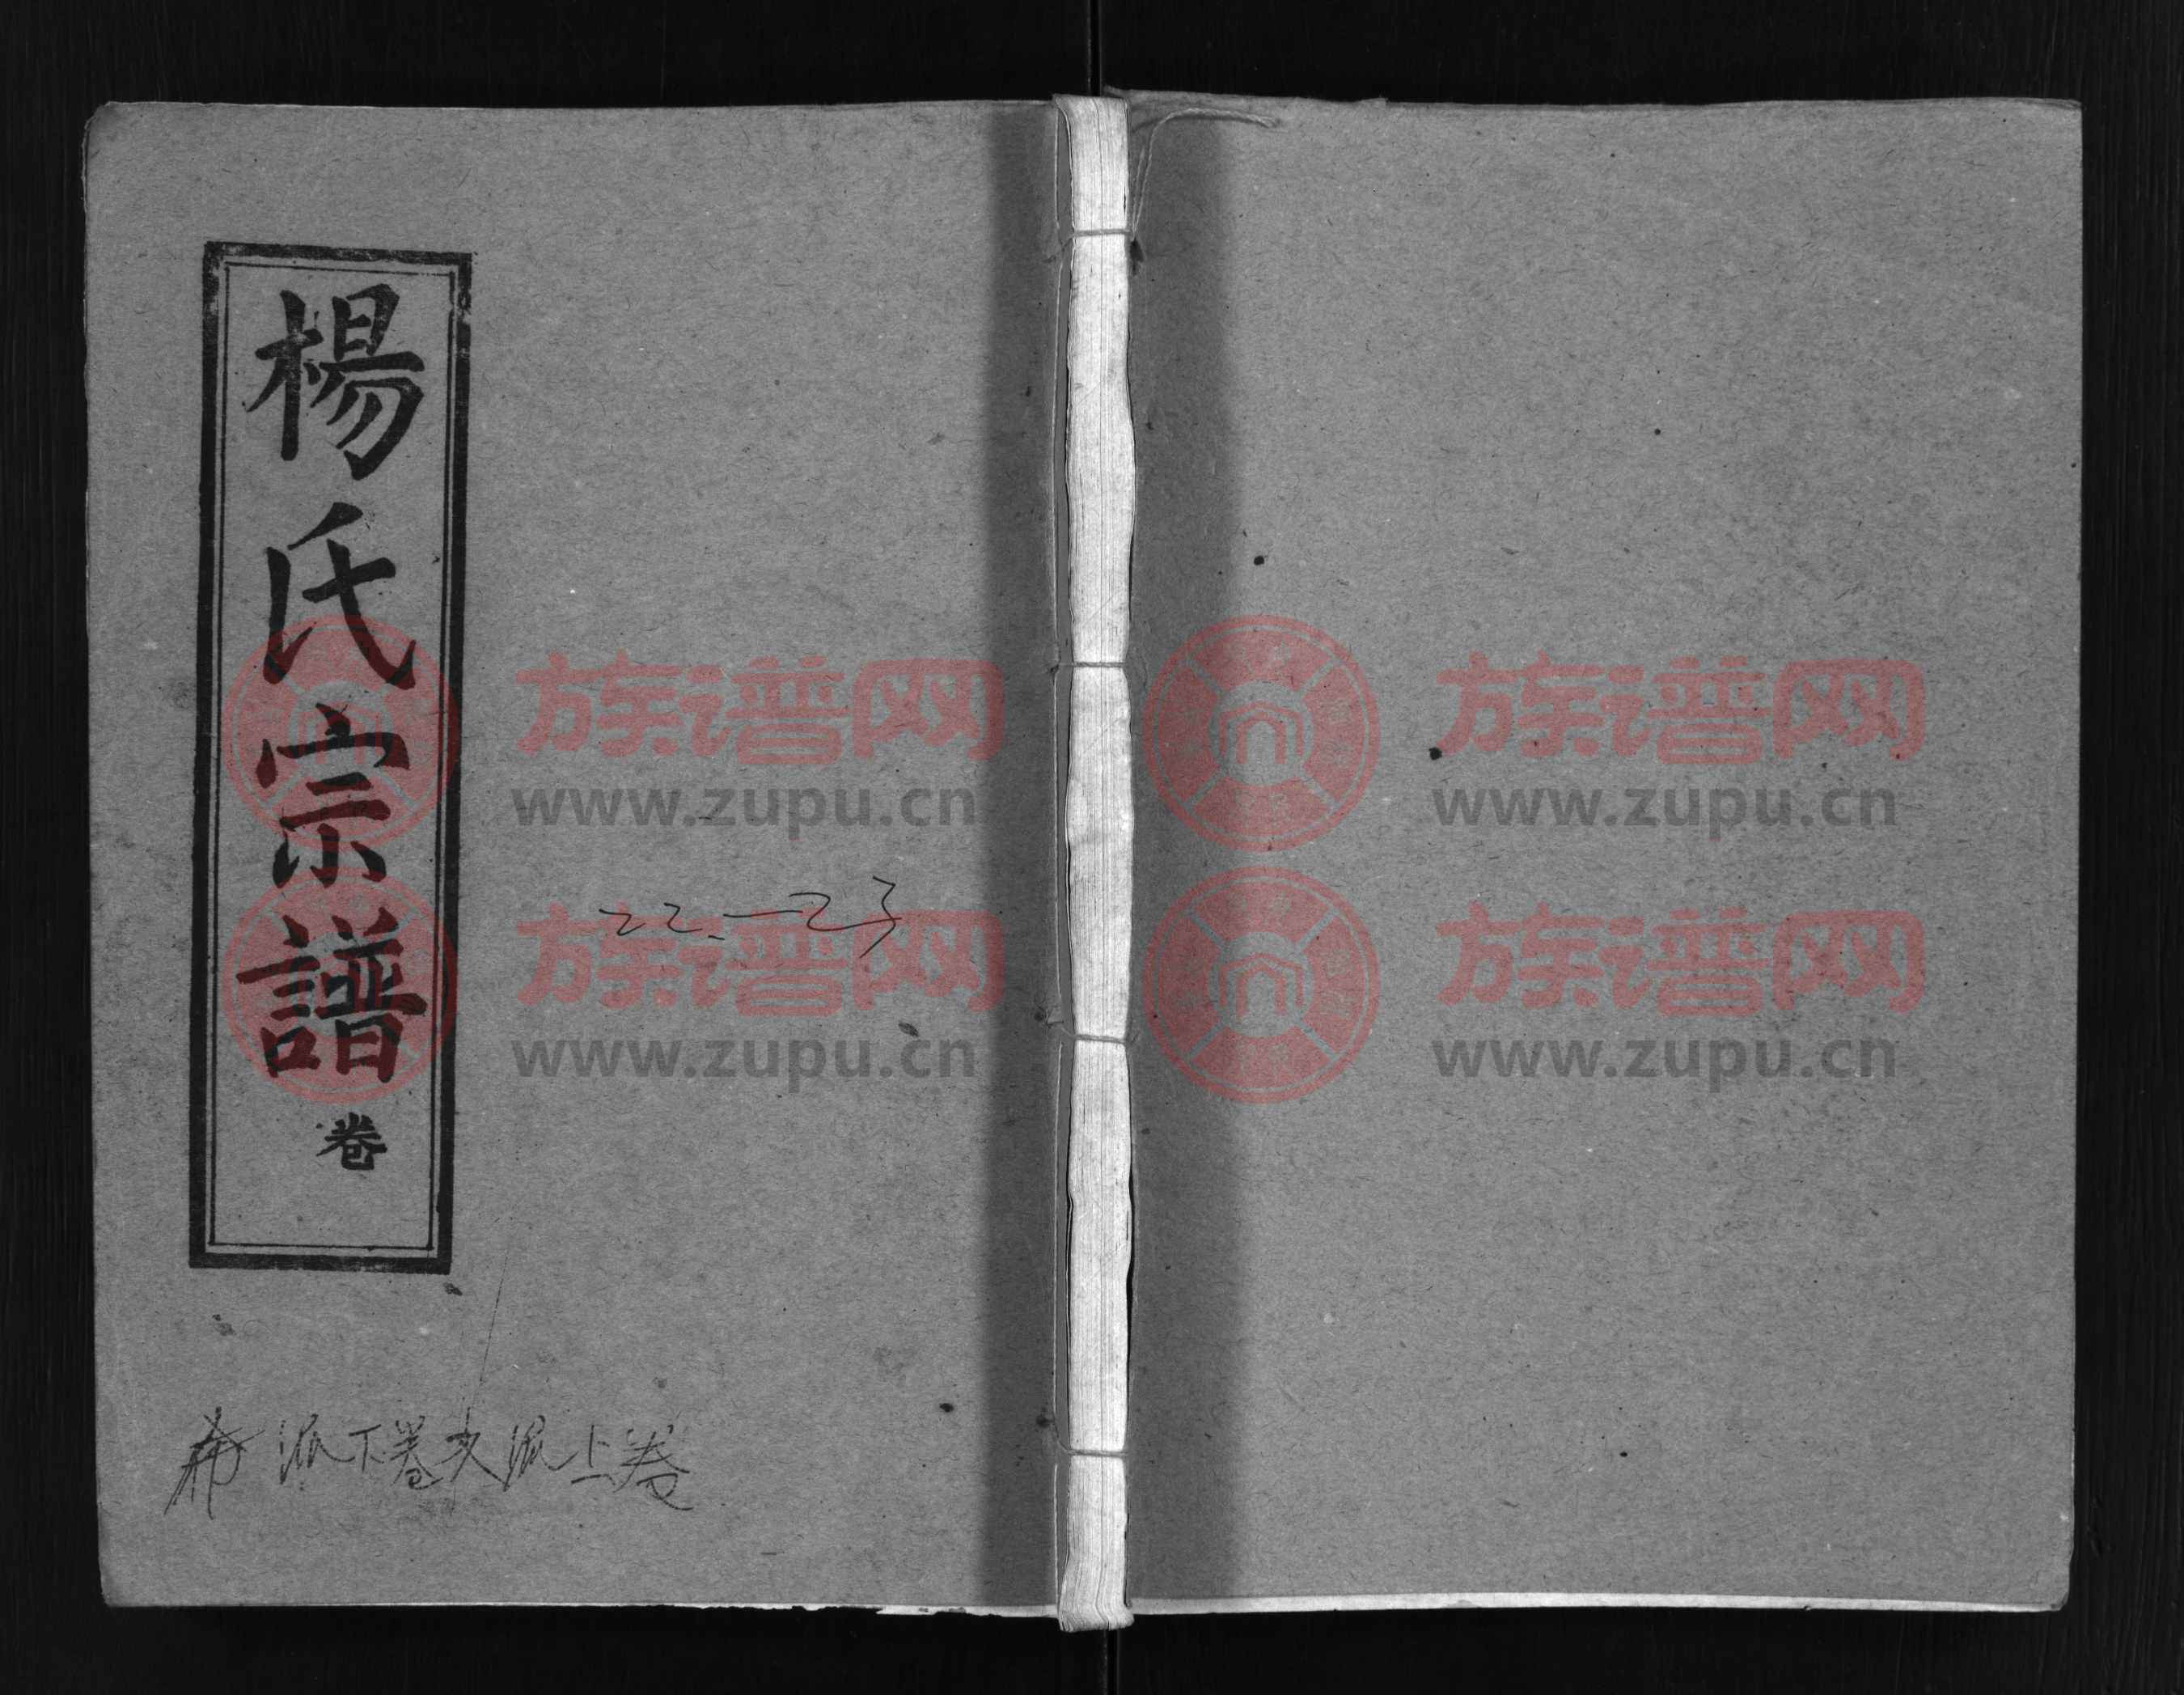 楊氏宗譜 卷
族谱网 族谱网
www.zupu.cn www.zupu.cn
22-23
族谱网 族谱网
www.zupu.cn www.zupu.cn
希派下卷文派上卷